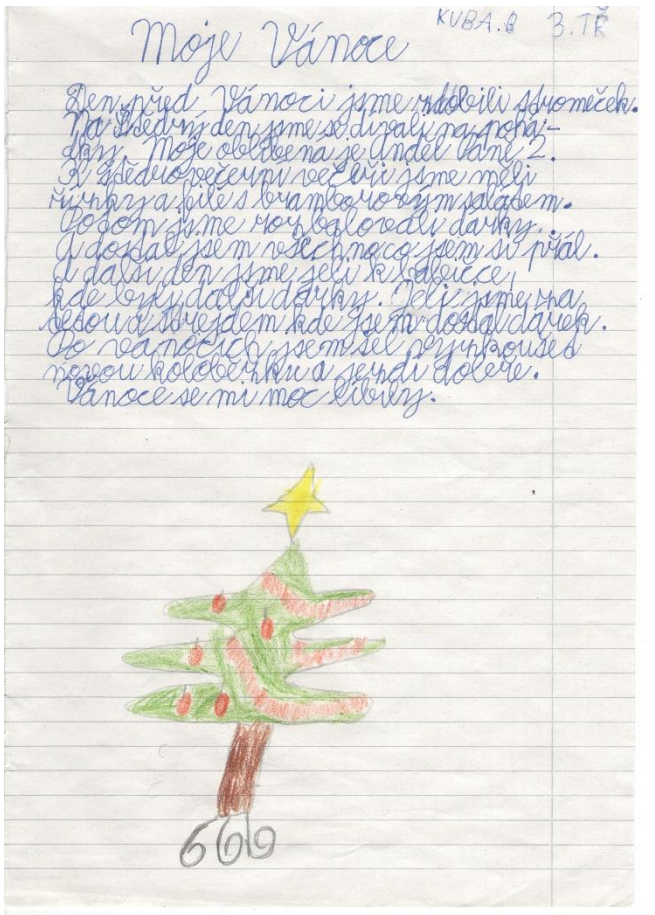 KUBA.B 3.TŘ
Moje Vánoce
Den před Vánoci jsme zdobili stromeček.
Na Štědrý den jsme se dívali na pohá-
dky. Moje oblíbena je Anděl Páně 2.
K štědrovečerní večeři jsme měli
řízky a filé s bramborovým salátem.
Potom jsme rozbalovali dárky.
A dostal jsem všechno co jsem si přál.
A další den jsme jeli k babičce,
kde byly další dárky. Jeli jsme za
tetou a strejdem kde jsem dostal dárek.
Po vánocích jsem šel vyzkoušed
novou koloběžku a jezdí dobře.
Vánoce se mi moc líbily.